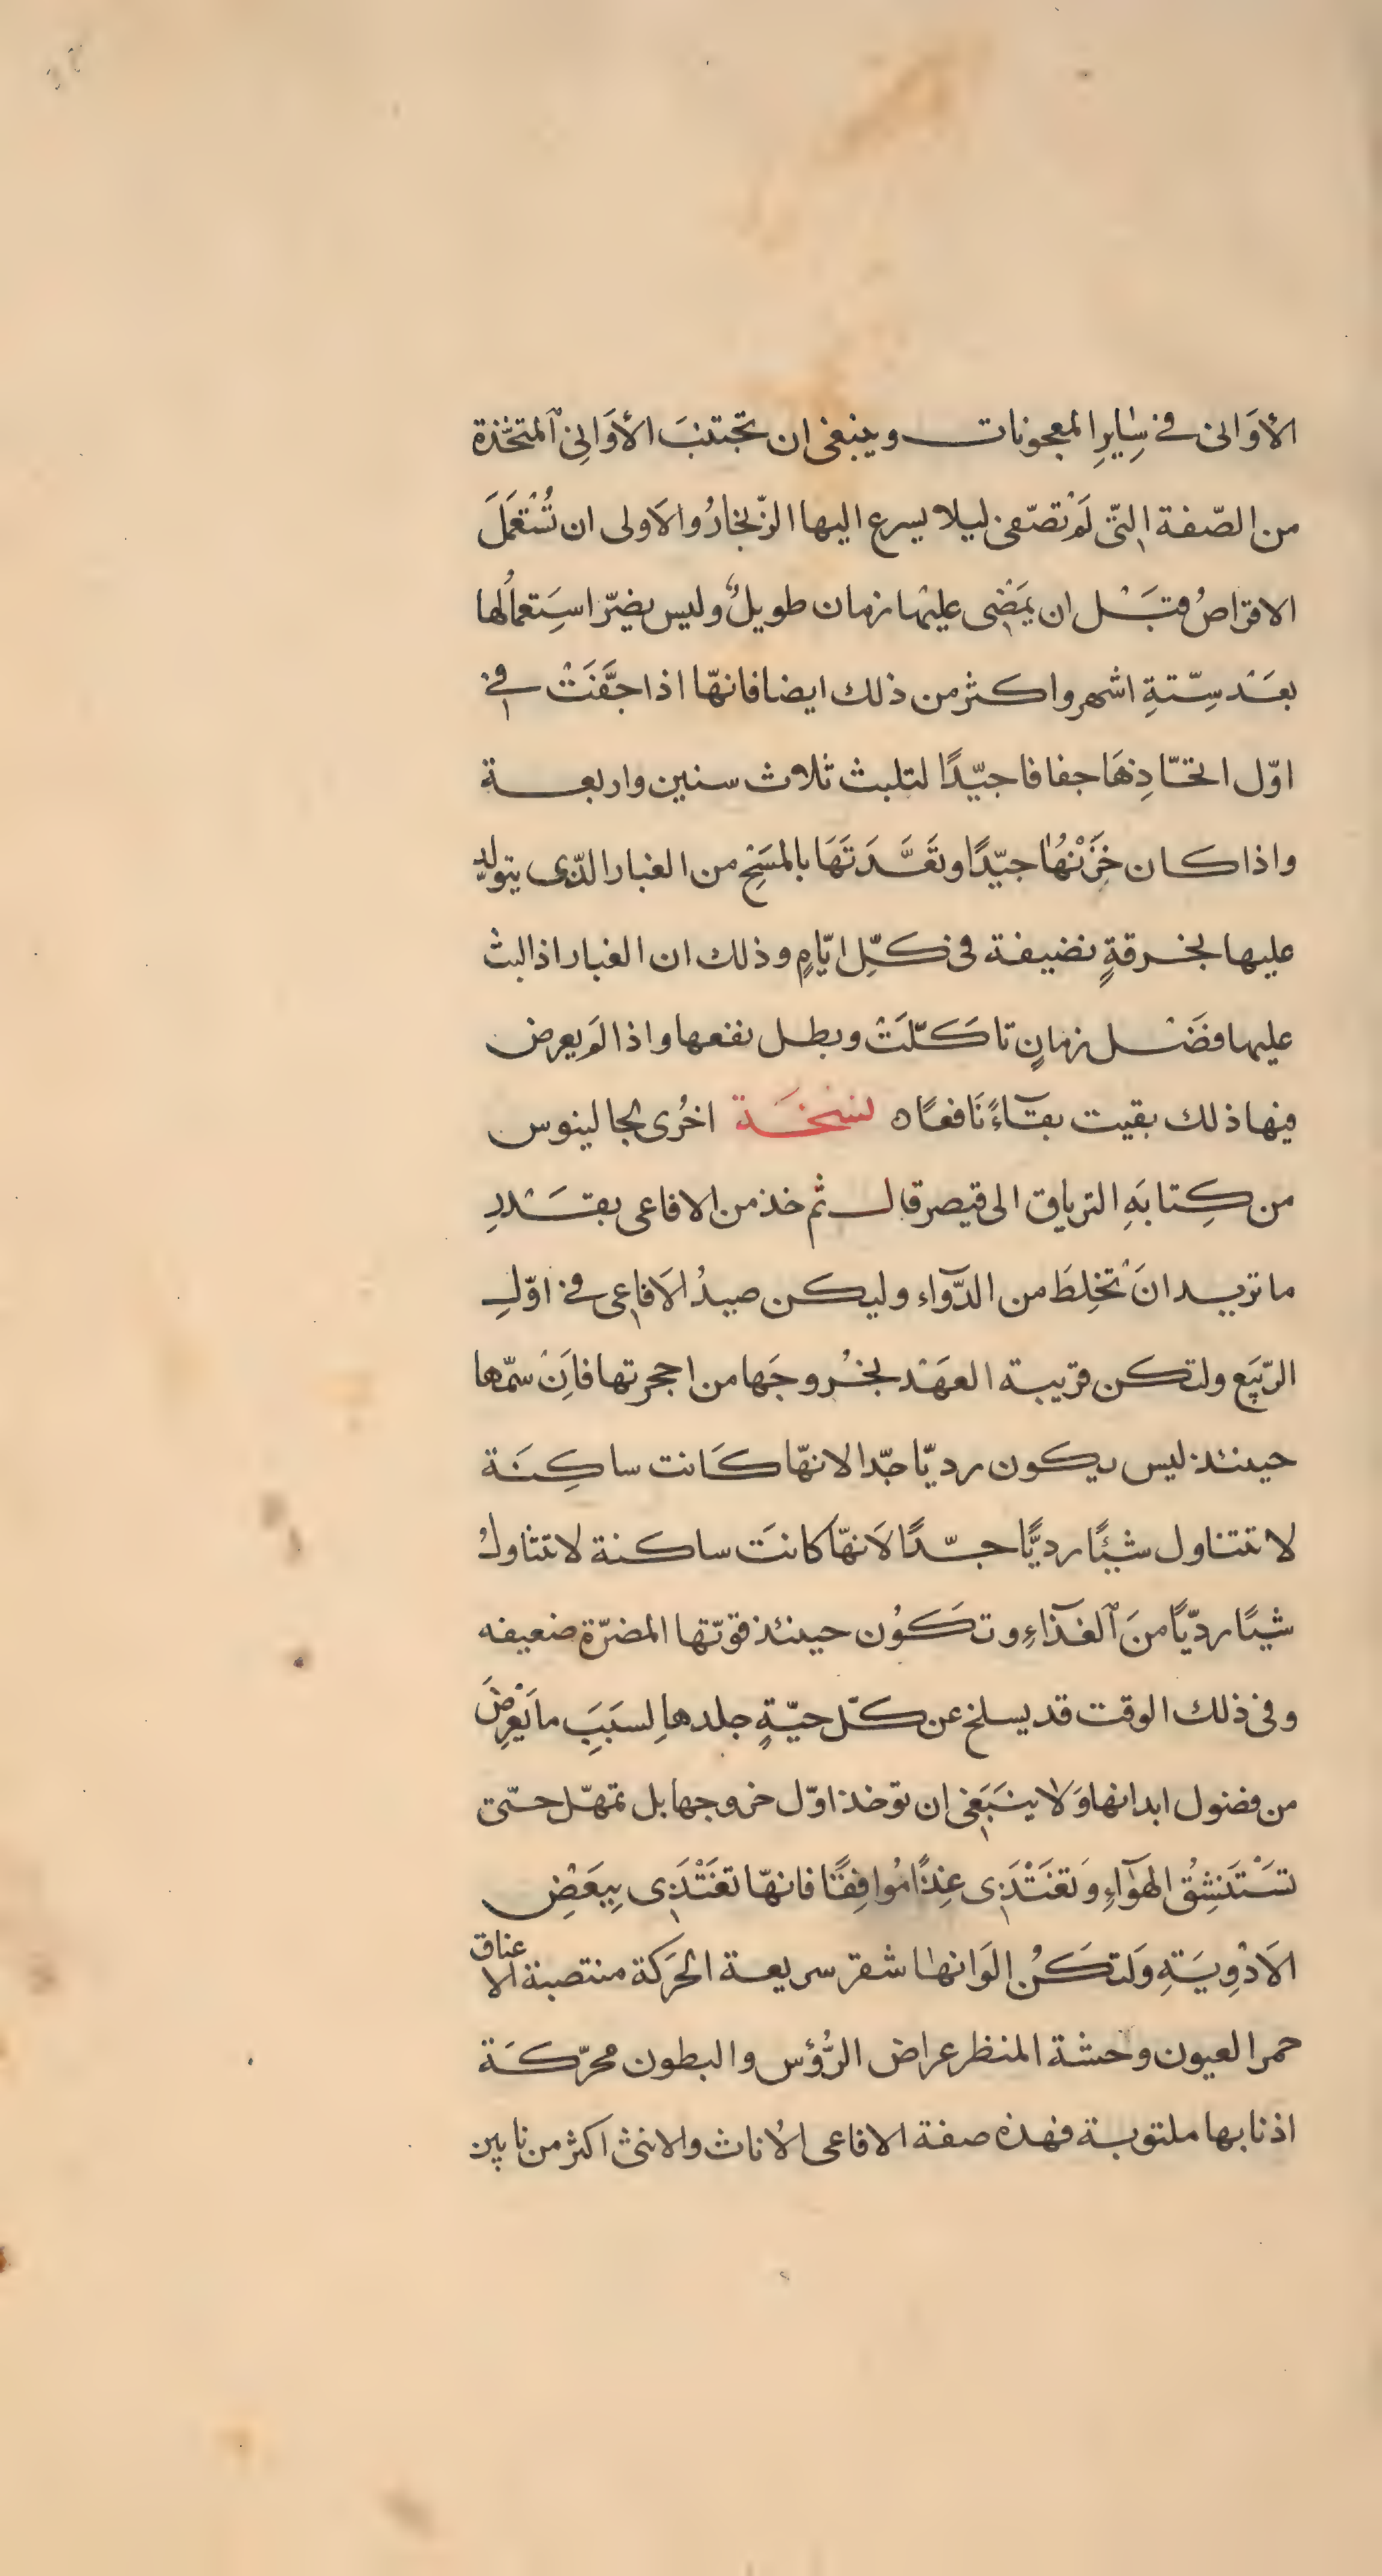 الأوَانى فى سِٰايرِ المعجونات وينبغى ان تجتنبَ الأوَانِى ٱلمتخّذة
من الصّفة التّى لَمْ تصّفى ليلا يسرع اليها الزّنجارُ والاَولى ان تُسْتْعَمَلَ
الاقراصُ قبَْل ان يمَضْى عليْها زمان طويلٌ وليس يضيّر استِعمالُها
بعَْد سِتّةِ اشهر واكثر من ذلك ايضا فانهّا اذا جَفَّتْ فى
اوّل اتخّاذِهَا جفافا جيّدًا لتلبث ثلاث سنين واربعة
واذا كان خَزْنُهٰا جيّدًا وتَعَّدَتَهَا بالمسَحِْ من الغبار الذّى يتولد
عليها بخرقةٍ نضيفة فى كلِّ ايّامٍ وذلك ان الغبار اذا لبث
عليها فضَْل زمانٍ تاكَلّتَْ وبطل نفعها واذا لَم يعرض
فيها ذلك بقيت بقآءً نَافعًا ه نسخَة اخُرى لجالينوس
من كِتابَهِ الترياق الى قيصر قال ثم خذ من الافاعى بقَْدرِ
ما تريد انَْ تخْلِطَ من الدّوآء وليكن صيدُ الاَفاعِى فى اوّلِ
الرّبيَع ولتكن قريبة العهَْد بخُروجَها من اجحرتها فاَِنْ سمّها
حينئذ ليس يكون رديّا جدّا لانهّا كَانت ساكِنَة
لا تتناول شيئًا رديًّا جدًّا لاَنهّا كانتَ ساكنة لا تتناولُ
شيئًا رديّاً منَ ٱلغذآءِ وتكَوُن حينئذ قوّتها المضرّة ضعيفه
وفى ذلك الوقت قد يسلخ عن كلّ حيّةٍ جلدهاِ لسبَبَِ ما يَعْرِضَ
من فضول ابدانها وَلا ينبَغَى ان توخذ اوّل خروجها بل تمهّل حتّى
تسَْتَنشِقُ الهوآءِ وَتغتَْذَى غِذًا مُوافِقًا فانهّا تغَتَْذَى بِبعَْضِ
الاَدْوِيَةِ وَلتكَنُ الَوانهٰا شقر سريعة الحَركة منتصبة الاعناق
حمر العيون وحشة المنظر عراض الرُّؤس والبطون محرّكَة
اذنابها ملتوية فهذه صفة الافاعى الاُناث والانثى اكثر من نابين